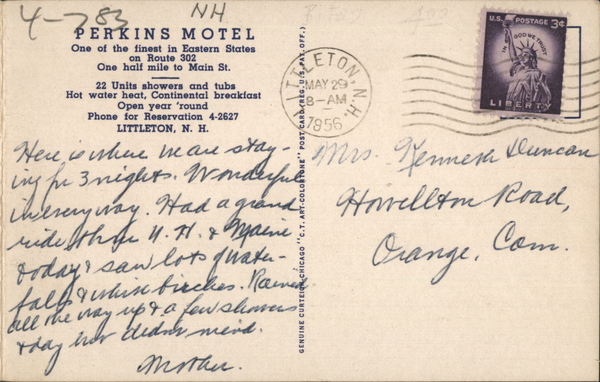 4-783 NH
PERKINS MOTEL
One of the finest in Eastern States
on Route 302
One half mile to Main St.
22 Units showers and tubs
Hot water heat, Continental breakfast
Open year 'round
Phone for Reservation 4-2627
LITTLETON, N. H.
Here is where we are stay-
ing for 3 nights. Wonderful
in every way. Had a grand
ride thru N. H. & Maine
today & saw lots of water-
falls & white birches. Rained
all the way up & a few showers
today but didn't mind.
Mother.
GENUINE CURTEICH-CHICAGO "C.T. ART-COLORTONE" POST CARD (REG. U.S. PAT. OFF.)
LITTLETON, N.H.
MAY 29
8-AM
1956
U.S. POSTAGE 3¢
IN GOD WE TRUST
LIBERTY
Mrs. Kenneth Duncan
Howellton Road,
Orange, Conn.